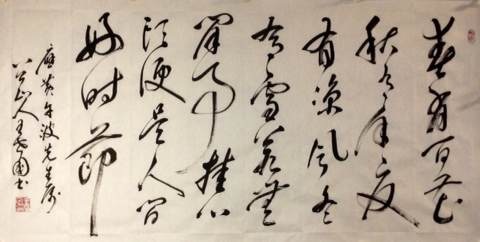 春有百花
秋有月夏
有凉风冬
有雪若无
闲事挂心
头便是人间
好时节
先生属
八公山人王书